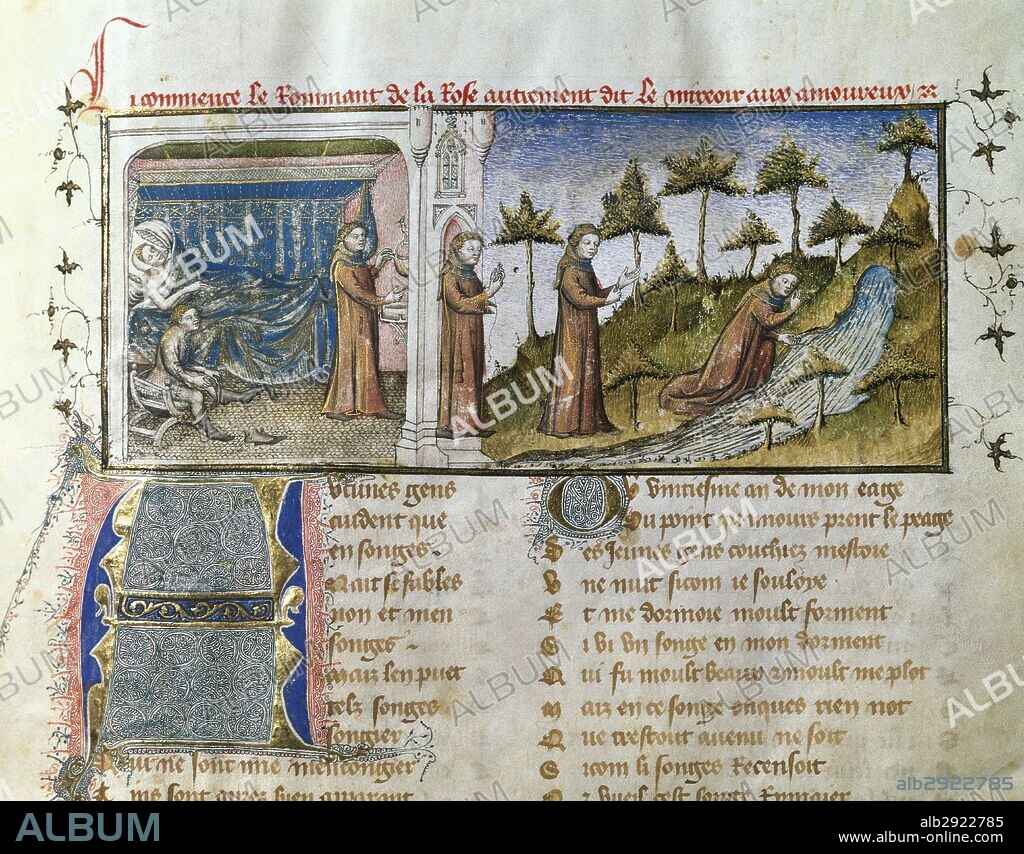 Ci commence le Rommant de la Rose autrement dit le miroir aux amoureux
Aucunes gens
cuident que
en songes
Nait se fables
non et men
songes
Mais len puet
telz songes
songier
Qui ne sont mie mencongier
Ains sont apres bien apparant
Ou vintiesme an de mon eage
Ou point quamours prent le peage
Des jeunes gens couchiez mestoie
Une nuit sicom ie souloye
Et me dormoie moult forment
Si vi un songe en mon dorment
Qui fu moult beaux et moult me plot
Mais en ce songe onques rien not
Que trestout avenu ne soit
Sicom li songes recensoit
Or vueil cest songe rymaier
ALBUM
alb2922785
ALBUM
alb2922785
www.album-online.com